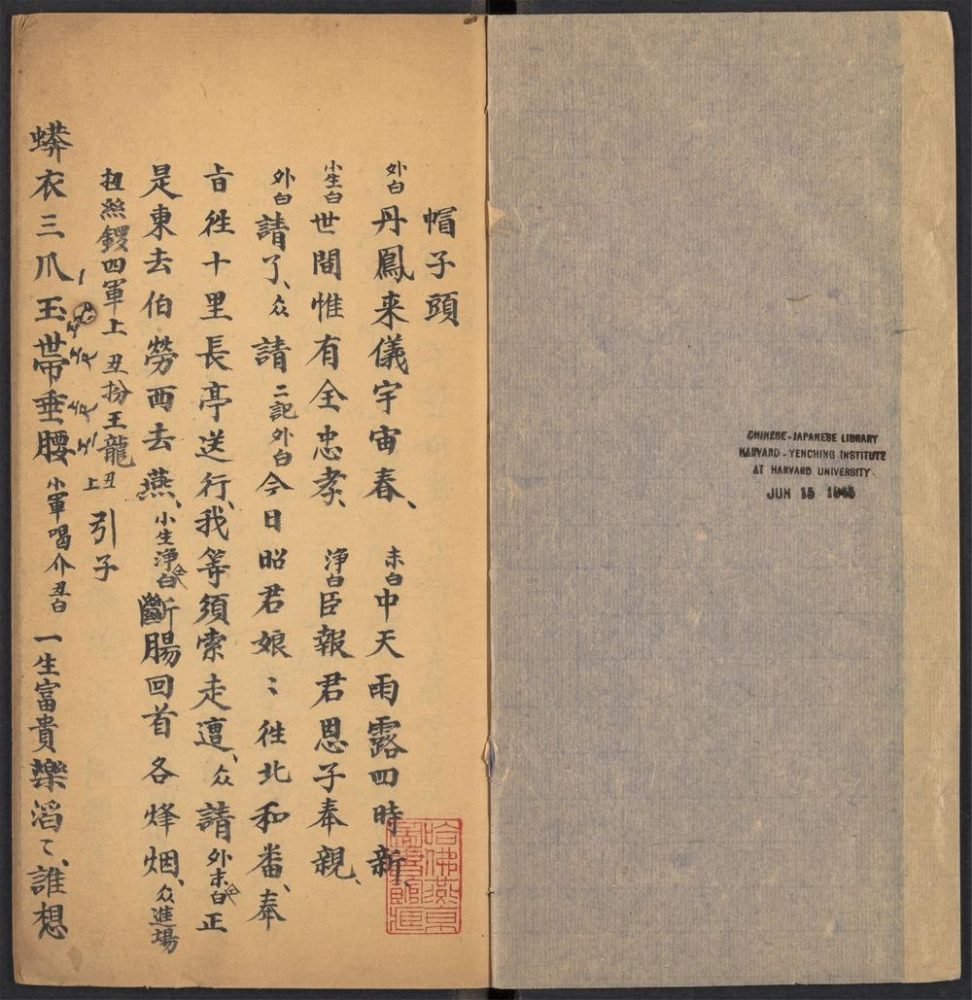 CHINESE-JAPANESE LIBRARY
HARVARD-YENCHING INSTITUTE
AT HARVARD UNIVERSITY
JUN 15 1945
帽子頭
外白丹鳳来儀宇宙春、末白中天雨露四時新、
小生白世間惟有全忠孝、淨白臣報君恩子奉親、
外白請了、众請二記外白今日昭君娘〻徃北和番、奉
旨徃十里長亭送行、我等須索走遭、众請外末白仝正
是東去伯勞西去燕、小生淨白仝斷腸回首各烽烟、众進場
扭絲鑼四軍上丑扮王龍丑上引子
蟒衣三爪玉帶垂腰、小軍喝介丑白一生富貴樂滔〻、誰想
哈佛燕京圖書館藏